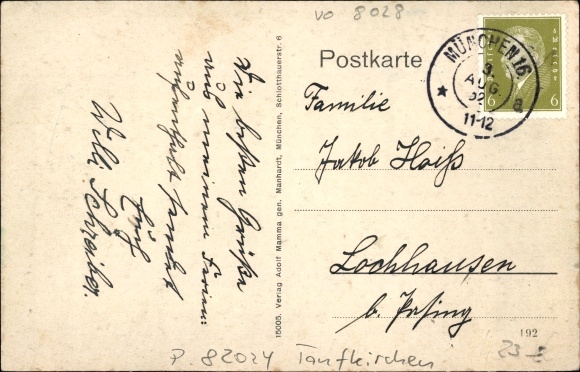 vo 8028
Die besten Grüße
aus meinem Ferien-
aufenthalt sendet
Euch
Willi Schreiber.
15005. Verlag Adolf Mamma gen. Manhardt, München, Schlotthauerstr. 6
Postkarte
MÜNCHEN 16
3.
AUG.
32
11-12
a
6 6
Familie
Jakob Hoiß
Lochhausen
b. Pasing
192
P. 82024 Taufkirchen